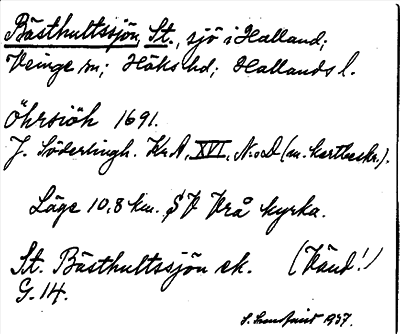 Bästhultssjön, St., sjö i Halland;
Veinge sn; Höks hd; Hallands l.
Öhrsiöh 1691.
J. Söderlingh. Kr.A, XVI, N:o D (m. kartbeskr.).
Läge 10,8 km. SV Vrå kyrka.
St. Bästhultssjön ek. (Vänd!)
G. 14.
1937.